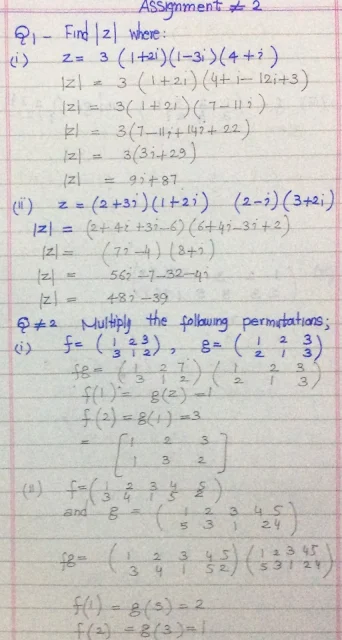 Assignment # 2
Q1 - Find |z| where:
(i) z = 3 (1+2i)(1-3i)(4+i)
|z| = 3 (1+2i)(4+i-12i+3)
|z| = 3(1+2i)(7-11i)
|z| = 3(7-11i+14i+22)
|z| = 3(3i+29)
|z| = 9i+87
(ii) z = (2+3i)(1+2i) (2-i)(3+2i)
|z| = (2+4i+3i-6)(6+4i-3i+2)
|z| = (7i-4)(8+i)
|z| = 56i-7-32-4i
|z| = 48i-39
Q#2 Multiply the following permutations;
(i) f = (1 2 3 / 3 1 2), g = (1 2 3 / 2 1 3)
fg = (1 2 7 / 3 1 2)(1 2 3 / 2 1 3)
f(1) = g(2) = 1
f(2) = g(1) = 3
= [1 2 3 / 1 3 2]
(ii) f = (1 2 3 4 5 / 3 4 1 5 2)
and g = (1 2 3 4 5 / 5 3 1 2 4)
fg = (1 2 3 4 5 / 3 4 1 5 2)(1 2 3 4 5 / 5 3 1 2 4)
f(1) = g(5) = 2
f(2) = g(3) = 1